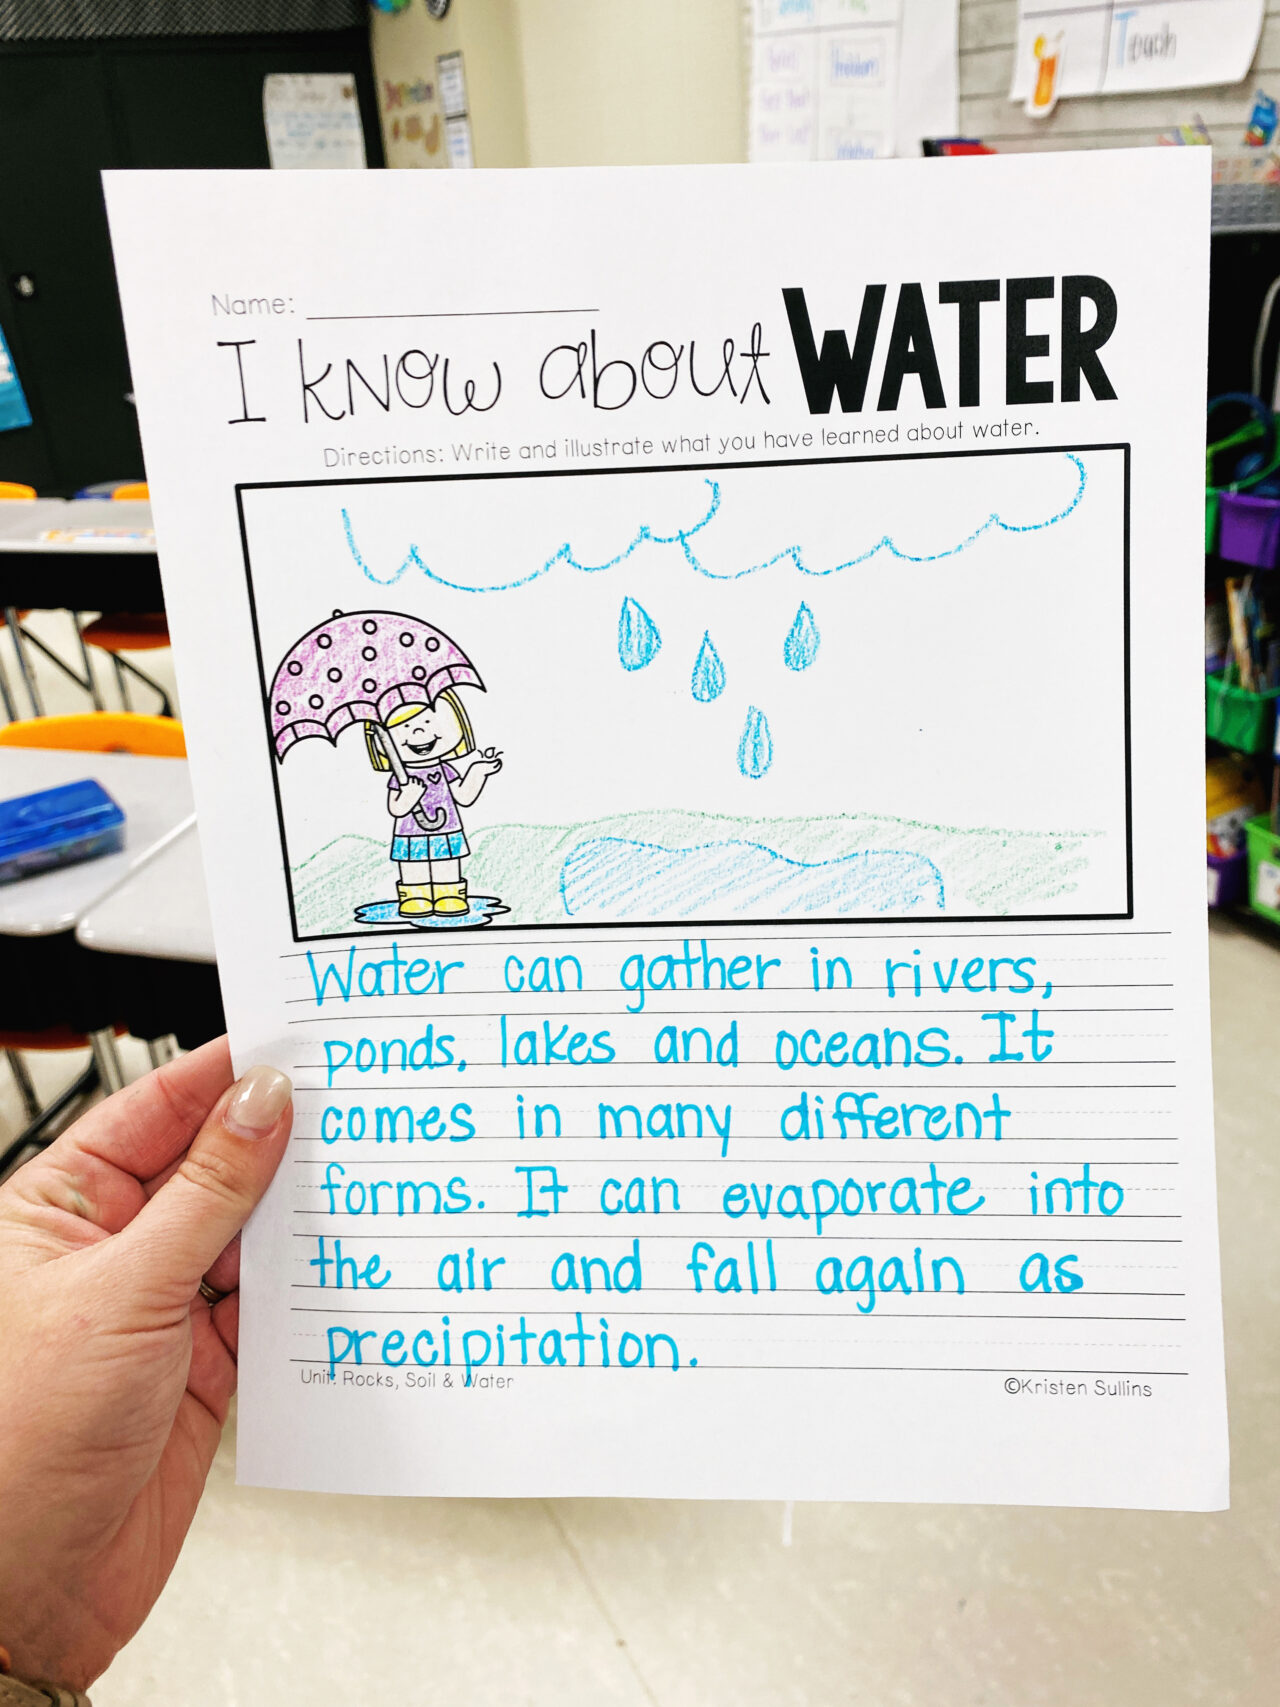 Teach
Name:
I know about WATER
Directions: Write and illustrate what you have learned about water.
Water can gather in rivers,
ponds, lakes and oceans. It
comes in many different
forms. It can evaporate into
the air and fall again as
precipitation.
Unit: Rocks, Soil & Water
©Kristen Sullins